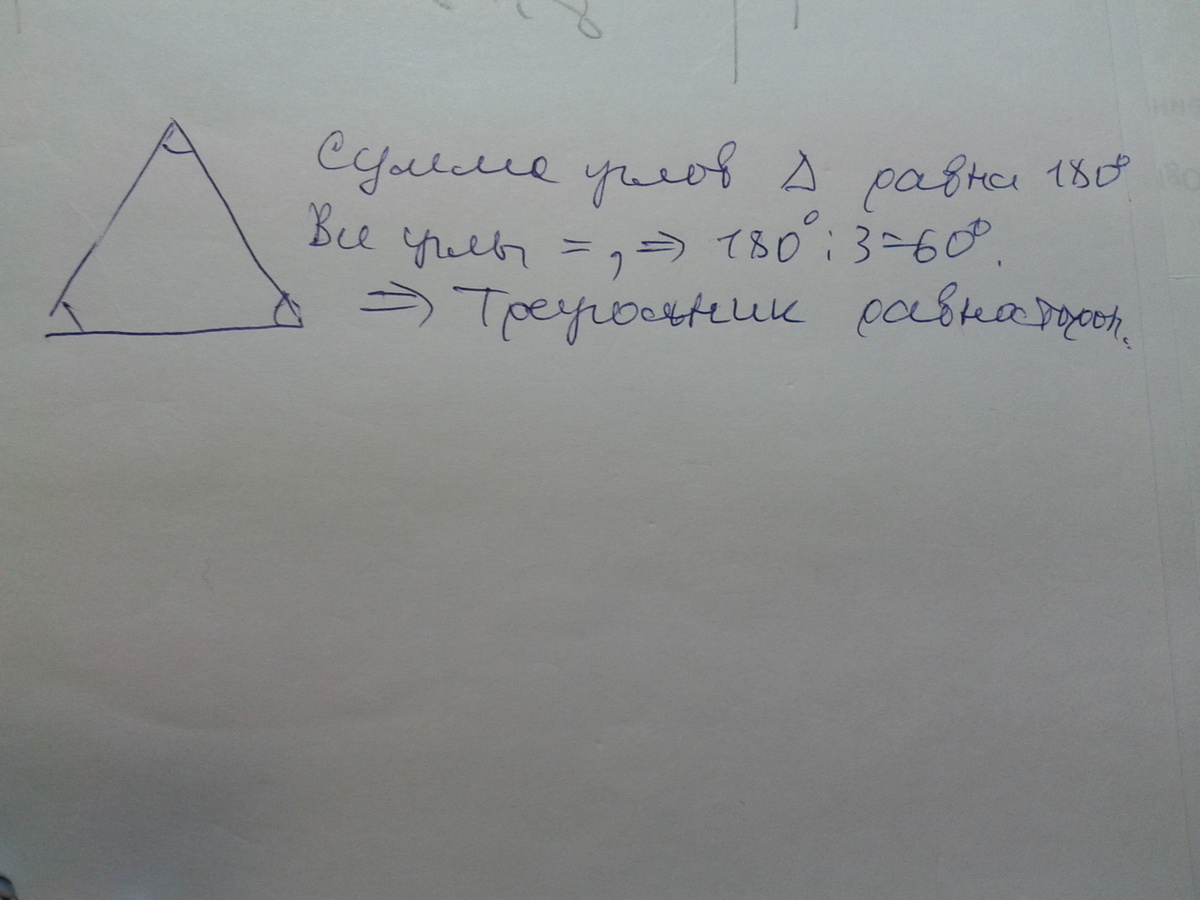 Сумма углов Δ равна 180°
Все углы =, ⇒ 180° : 3 = 60°.
⇒ Треугольник равносторон.